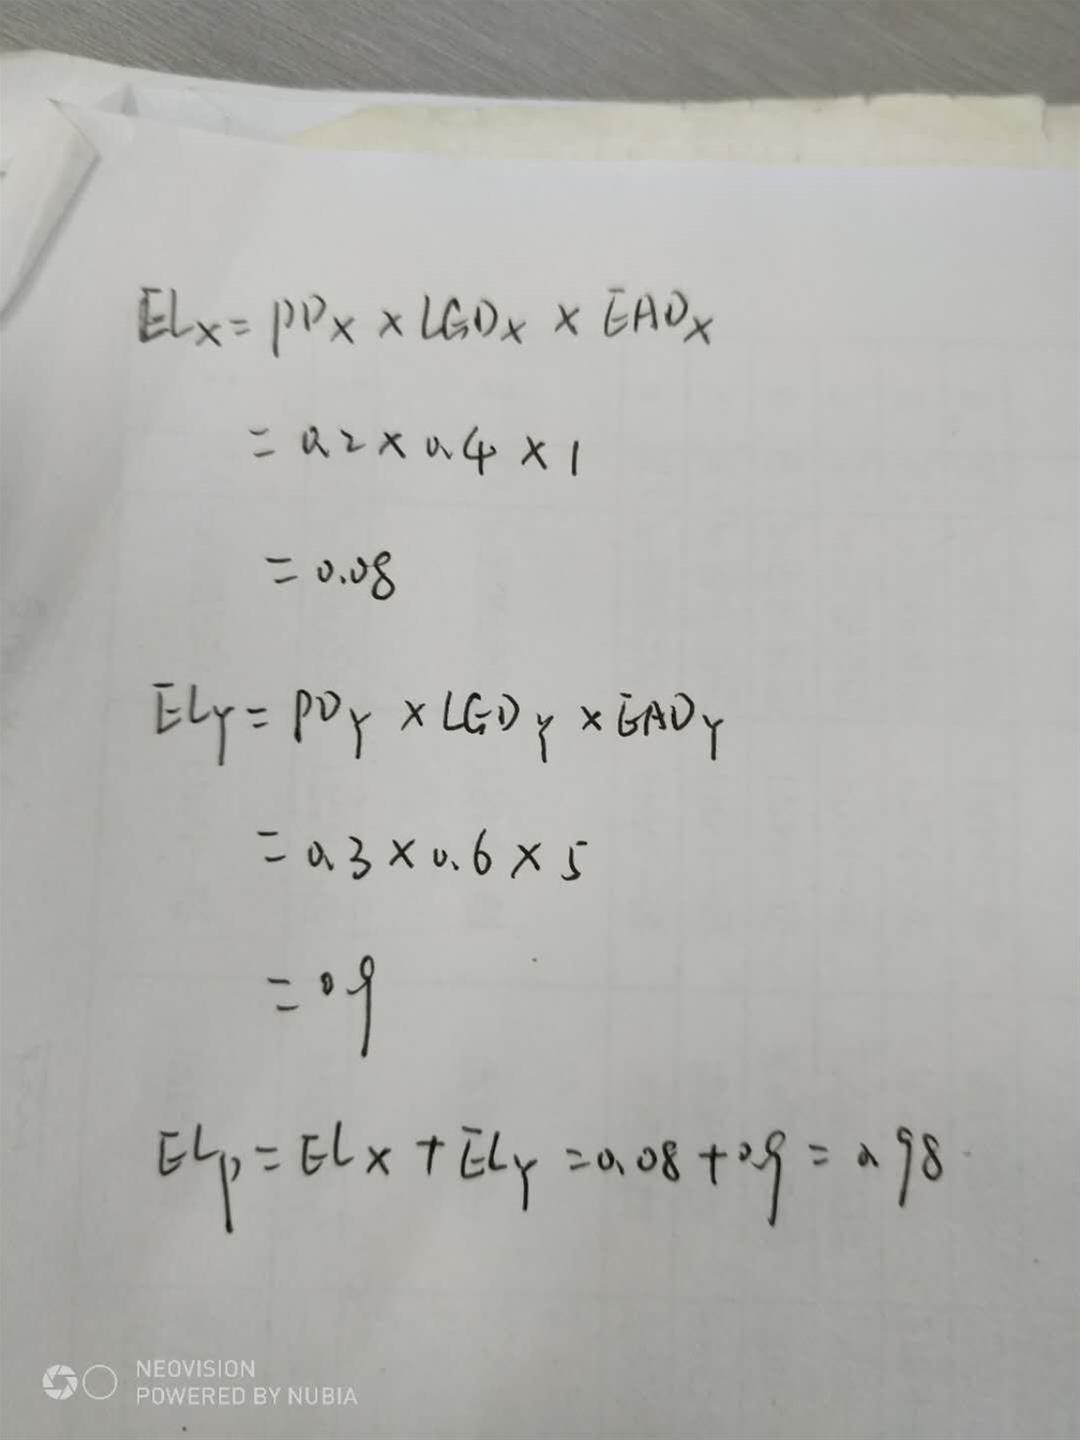 ELx = PDx × LGDx × EADx
= 0.2 × 0.4 × 1
= 0.08
ELY = PDY × LGDY × EADY
= 0.3 × 0.6 × 5
= 0.9
ELp = ELx + ELY = 0.08 + 0.9 = 0.98
NEOVISION
POWERED BY NUBIA